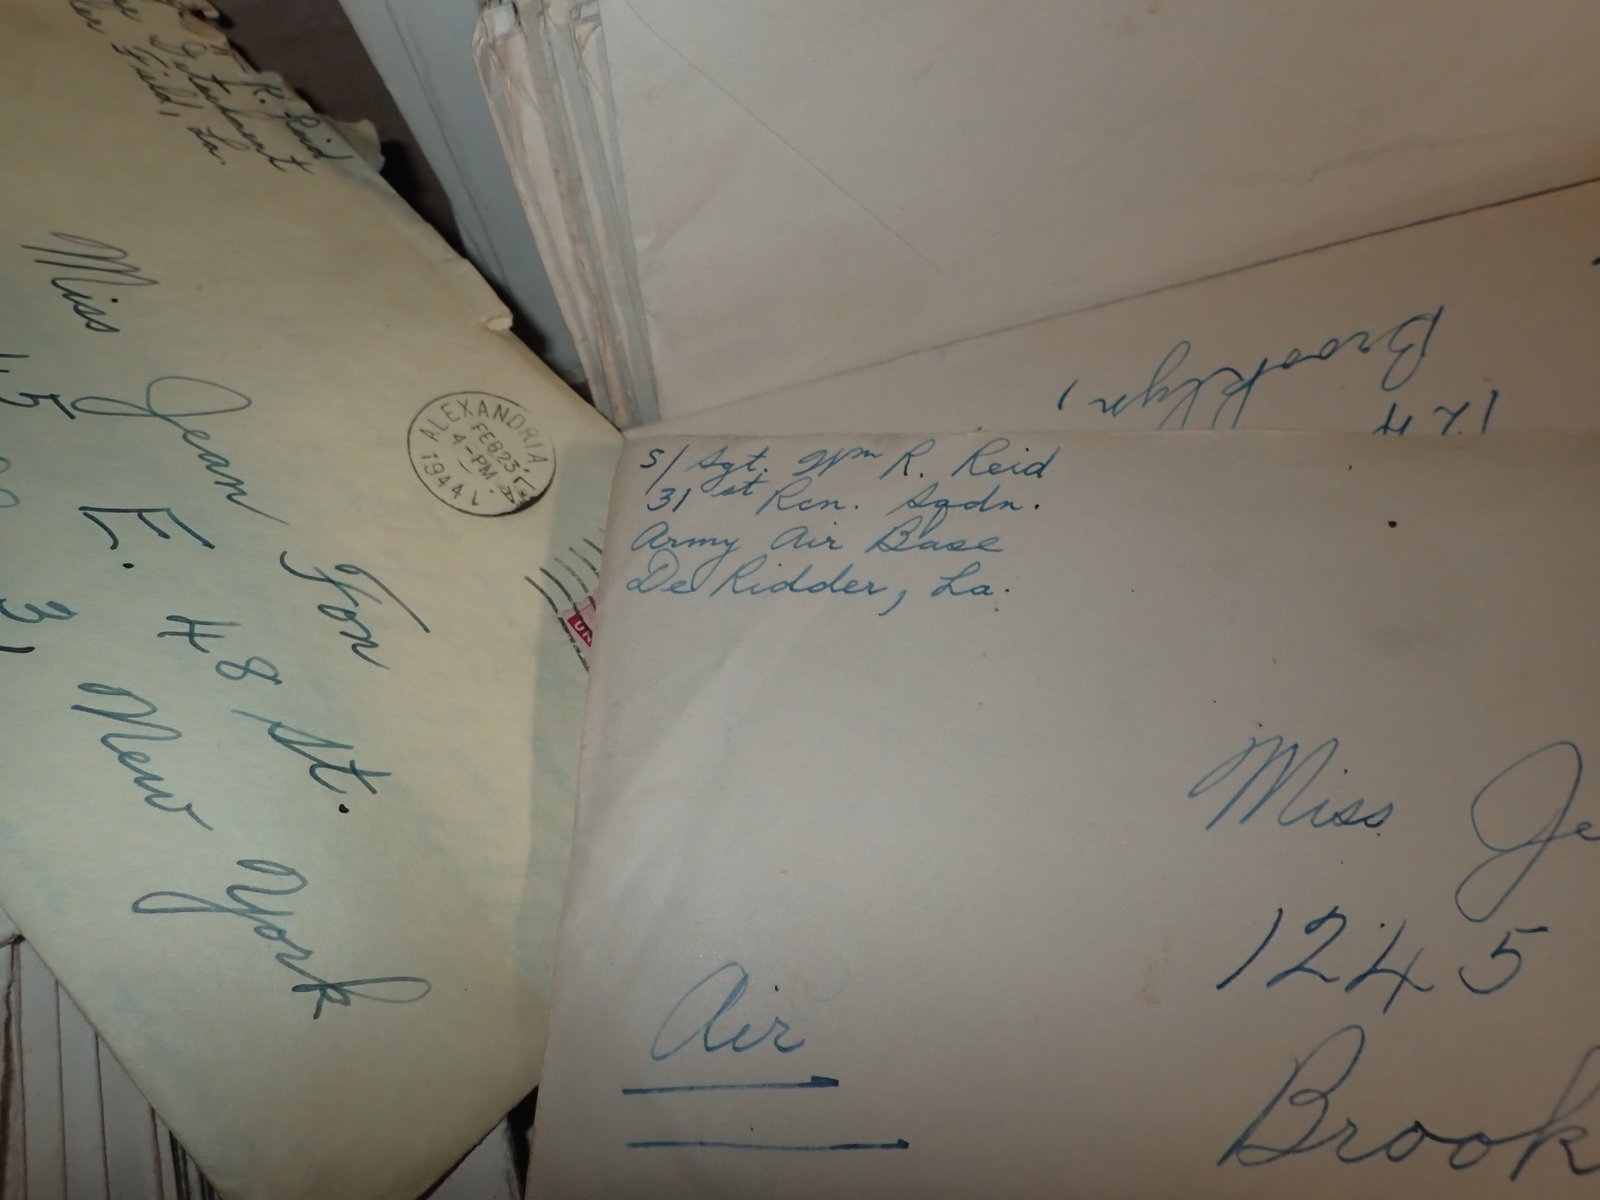 R. Reid
Detachment
Field, La.
Miss Jean Fon
45 E. 48 St.
31 New York
ALEXANDRIA
FEB 23
4-PM
1944
LA.
UN
S/Sgt. Wm R. Reid
31st Rcn. Sqdn.
Army Air Base
De Ridder, La.
Miss Je
1245
Brook
Air
124
Brooklyn